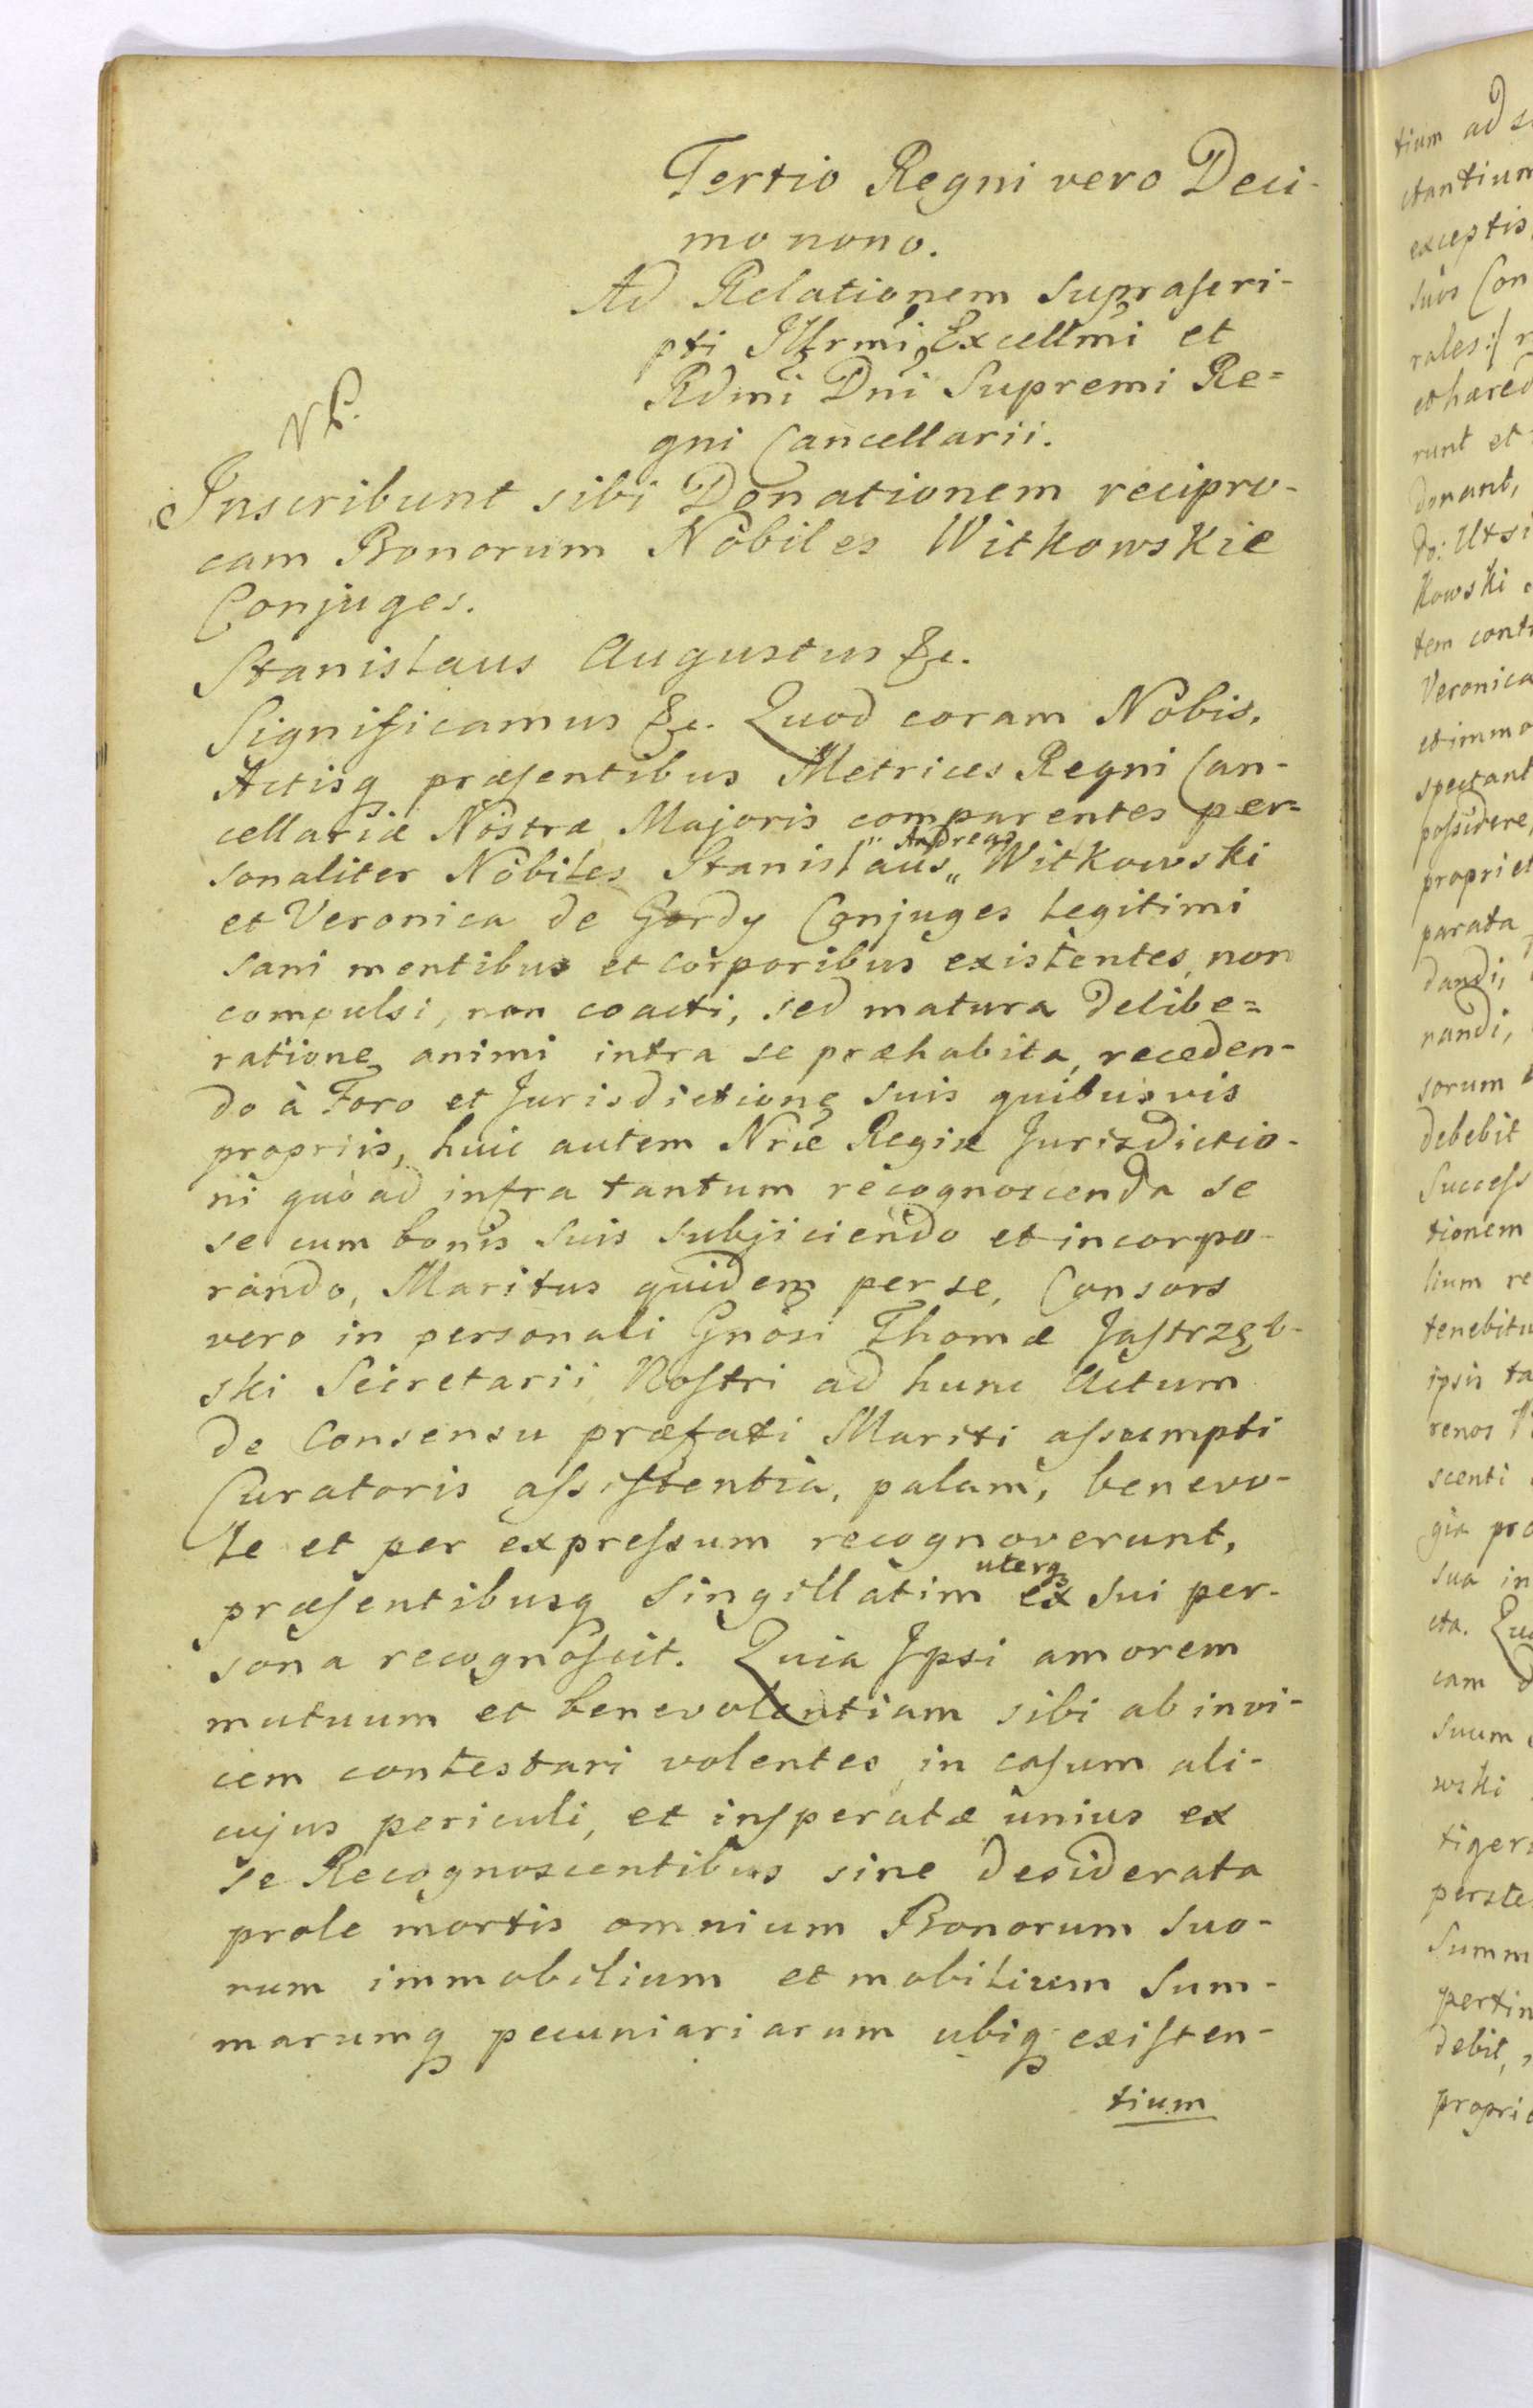 Tertio Regni vero Deci-
mo nono.
Ad Relationem supraſcri-
pti Illrmi Excellmi et
Rdmi Dni Supremi Re=
gni Cancellarii.
Inscribunt sibi Donationem recipro-
cam Bonorum Nobiles Witkowskie
Conjuges.
Stanislaus Augustus &c.
Significamus &c. Quod coram Nobis,
Actisq præſentibus Metrices Regni Can-
cellariæ Nostræ Majoris comparentes per=
sonaliter Nobiles Stanislaus „ Andreas „ Witkowski
et Veronica de Gordy Conjuges legitimi
sani mentibus et corporibus existentes, non
compulsi, non coacti, sed matura delibe=
ratione animi intra se præhabita, receden-
do à Foro et Jurisdictione suis quibusvis
propriis, huic autem Nræ Regiæ Jurisdictio-
ni quòad infra tantum recognoscenda se
se cum bonis suis subjiciendo et incorpo-
rando, Maritus quidem per se, Consors
vero in personali Gnosi Thomæ Jaſtrzęb-
ski Secretarii Noſtri ad hunc Actum
de Consensu præfati Mariti aſsumpti
Curatoris aſsiſtentia, palam, benevo-
le et per expreſsum recognoverunt,
præſentibusq singillatim uterq ex sui per-
sona recognoſcit. Quia Ipsi amorem
mutuum et benevolentiam sibi ab invi-
cem contestari volentes, in caſum ali-
cujus periculi, et inſperatæ unius ex
se Recognoscentibus sine desiderata
prole mortis omnium Bonorum suo-
rum immobilium et mobilium sum-
marumq pecuniariarum ubiq exiſten-
tium
tium ad
ctantium
exceptis
suos Con
rales:/
et hæred
runt et
donant,
do: Utsi
kowski
tem cont
Veronica
et immo
spectant
poſsidere,
propriet
parata
dandi,
nandi,
sorum
debebit
Succeſs
tionem
lium re
tenebitu
ipsis ta
renos
scenti
gia pro
sua in
cta.
cam
suum
wski
tiger
perste
Summ
pertin
debit,
propri